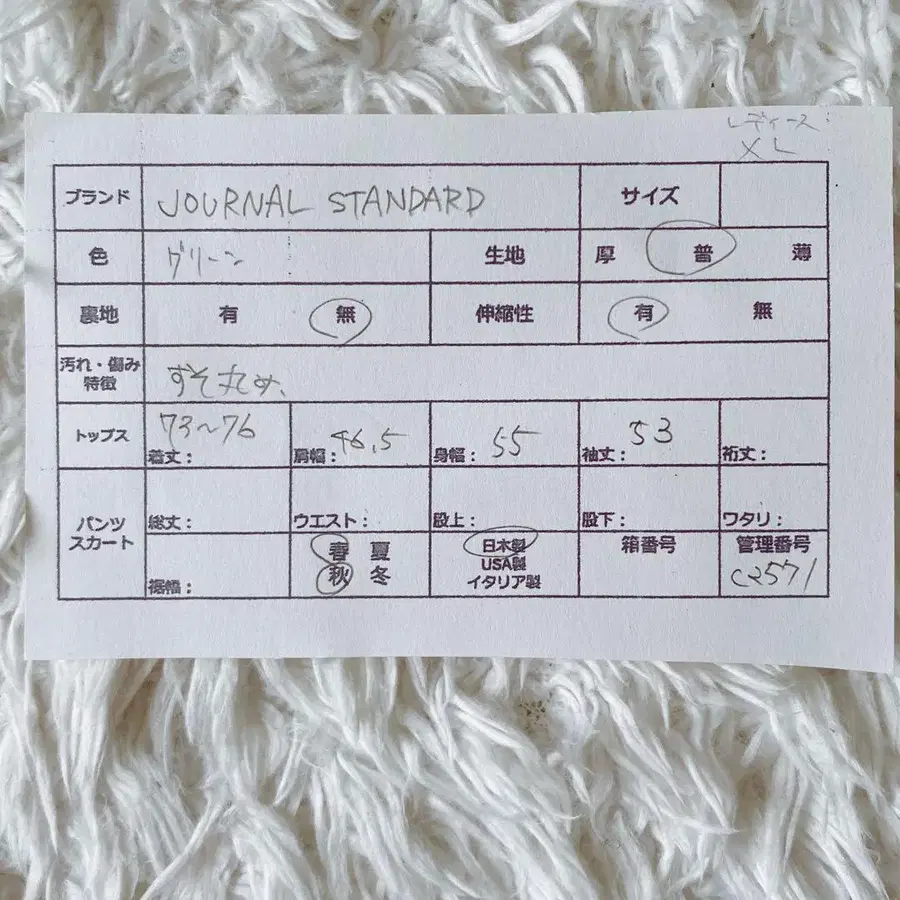 レディース
XL
ブランド JOURNAL STANDARD サイズ
色 グリーン 生地 厚 普 薄
裏地 有 無 伸縮性 有 無
汚れ・傷み
特徴 すそ丸め、
トップス 着丈：73〜76 肩幅：46.5 身幅：55 袖丈：53 裄丈：
パンツ
スカート
総丈： ウエスト： 股上： 股下： ワタリ：
裾幅： 春 夏 日本製 箱番号 管理番号
秋 冬 USA製 C2571
イタリア製